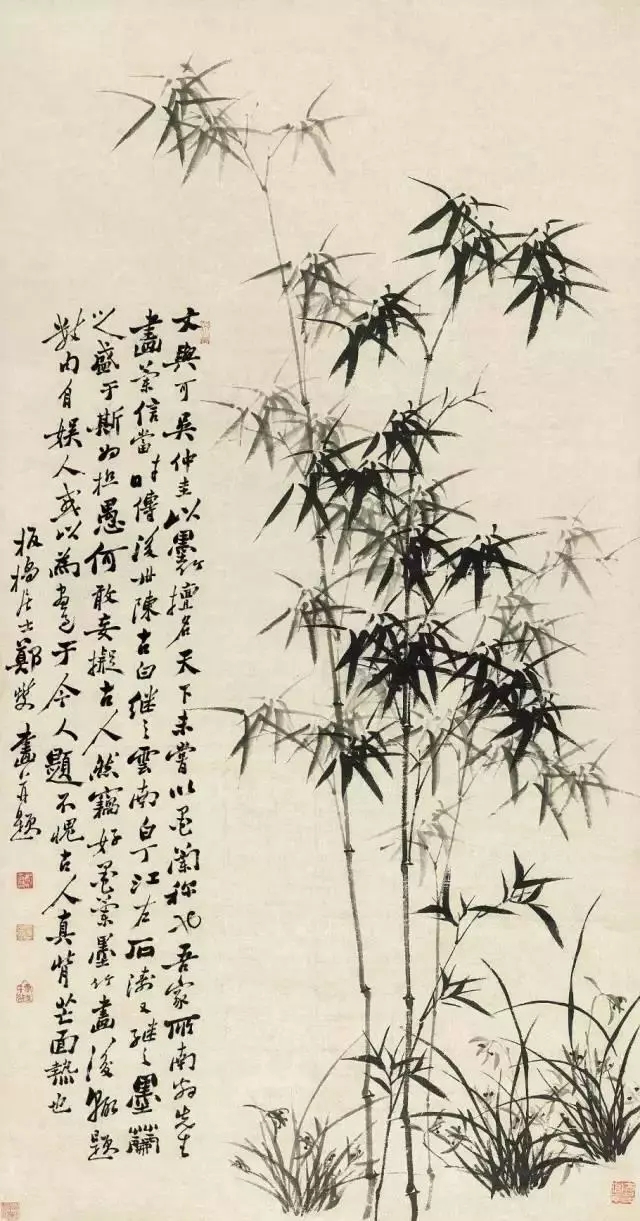 文與可吳仲圭以墨竹擅名天下未嘗以墨蘭称也吾家所南翁先生
畫蘭信當時傳後世陳古白繼之雲南白丁江右石濤又繼之墨蘭
之盛于斯為極愚何敢妄擬古人然竊好墨蘭墨竹畫後輒題
自娛人或以為畫于今人題不愧古人真背芒面熱也
板橋居士鄭燮畫并題